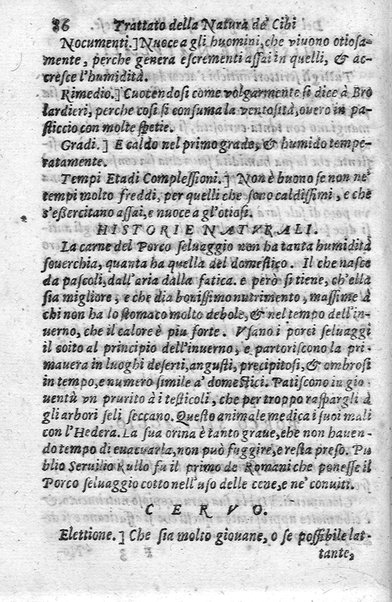 86 Trattato della Natura de' Cibi
Nocumenti.] Nuoce a gli huomini, che viuono otiosa-
mente, perche genera escrementi assai in quelli, & ac-
cresce l'humidità.
Rimedio.] Cuocendosi come volgarmente si dice à Bro
lardieri, perche così si consuma la ventosità, ouero in pa-
sticcio con molte spetie.
Gradi.] E caldo nel primo grado, & humido tempe-
ratamente.
Tempi Etadi Complessioni.] Non è buono se non ne'
tempi molto freddi, per quelli che sono caldissimi, e che
s'essercitano assai, e nuoce a gl'otiosi.
HISTORIE NATVRALI.
La carne del Porco seluaggio non ha tanta humidità
souerchia, quanta ha quella del domestico. Il che nasce
da pascoli, dall'aria dalla fatica. e però si tiene, ch'ella
sia migliore, e che dia bonissimo nutrimento, massime à
chi non ha lo stomaco molto debole, & nel tempo dell'in-
uerno, che il calore è piu forte. Vsano i porci seluaggi
il coito al principio dell'inuerno, e partoriscono la pri-
mauera in luoghi deserti, angusti, precipitosi, & ombrosi
in tempo, e numero simile a' domestici. Patiscono in gio-
uentù vn prurito à i testicoli, che per troppo raspargli à
gli arbori seli seccano. Questo animale medica i suoi mali
con l'Hedera. La sua orina è tanto graue, che non hauen-
do tempo di euacuarla, non può fuggire, e resta preso. Pu
blio Seruilio Rullo fu il primo de Romani che ponesse il
Porco seluaggio cotto nell'uso delle cene, e ne' conuiti.
CERVO.
Elettione.] Che sia molto giouane, o se possibile lat-
tante,